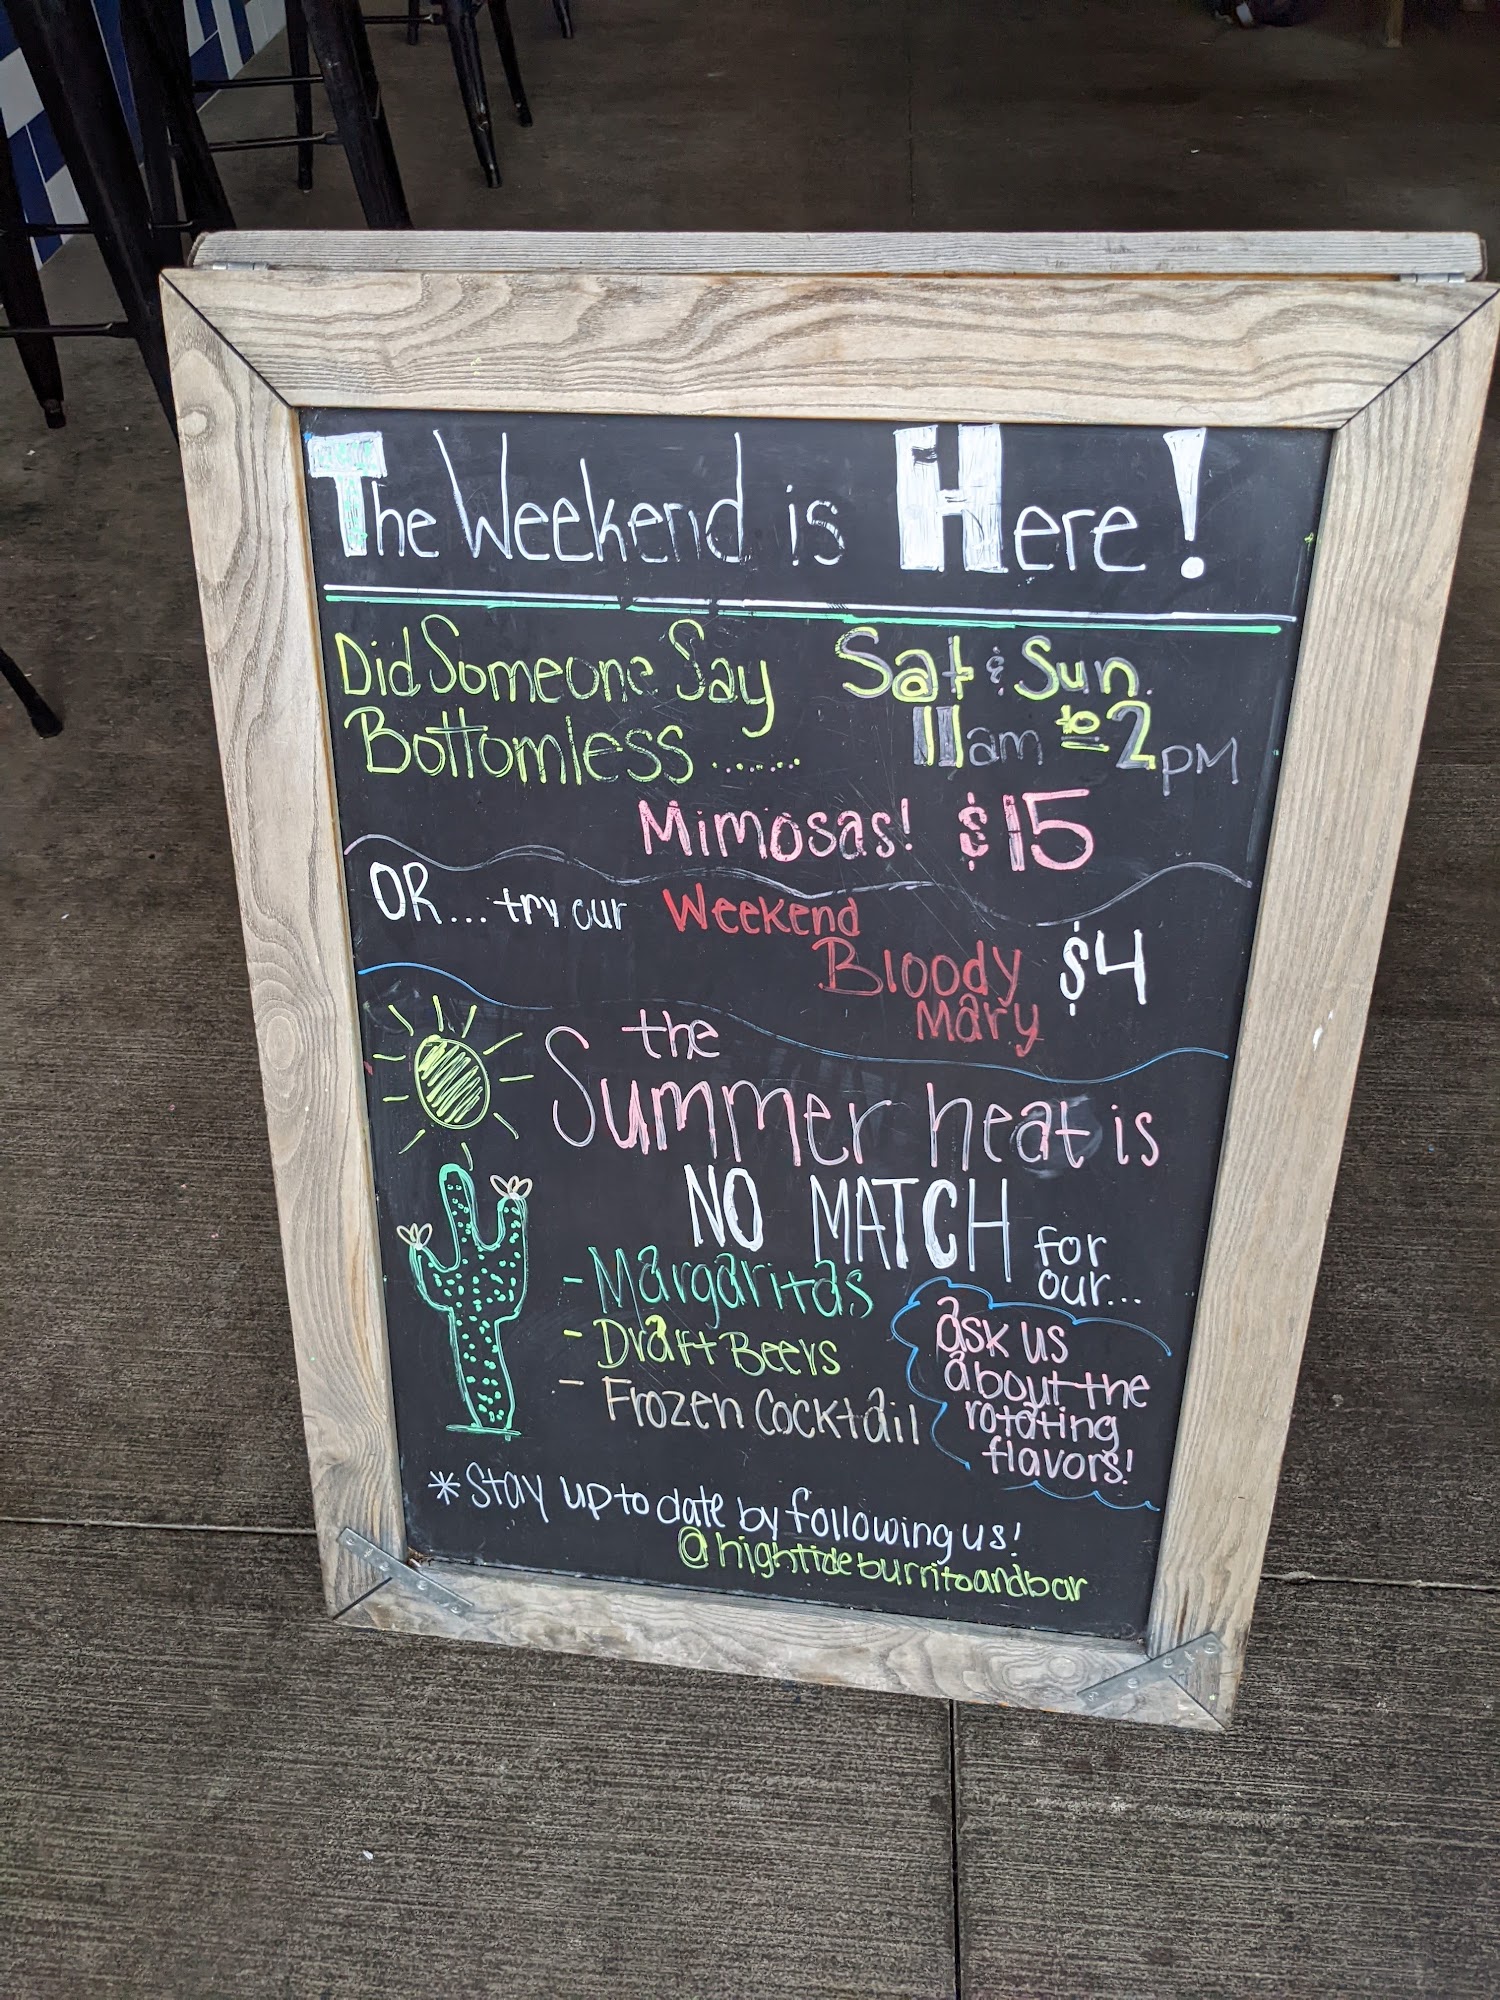 The Weekend is Here!
Did Someone Say
Bottomless.......
Sat & Sun.
11am to 2PM
Mimosas! $15
OR... try our Weekend
Bloody
Mary
$4
the
Summer heat is
NO MATCH for
our...
- Margaritas
- Draft Beers
- Frozen Cocktail
ask us
about the
rotating
flavors!
* Stay up to date by following us!
@hightideburritoandbar